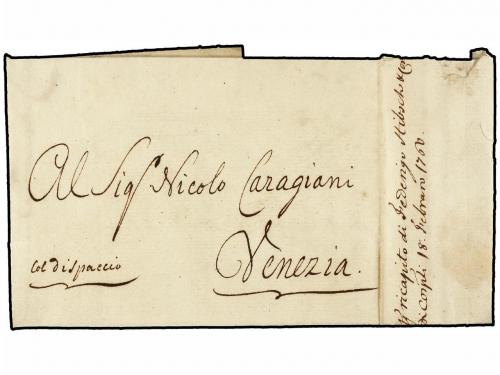 Al Sig.r Nicolo Caragiani
Venezia.
col dispaccio
ricapito di Federigo Hibsch & Co
di Conpli 18. Febraro 1760.